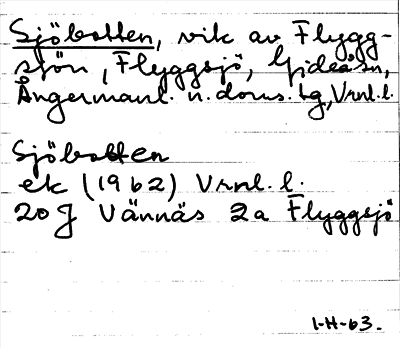 Sjöbotten, vik av Flygg-
sjön, Flyggsjö, Gideåsn,
Ångermanl. n. doms. tg, Vrnl. l.
Sjöbotten
ek (1962) Vrnl. l.
20 J Vännäs 2a Flyggsjö
1-H-63.